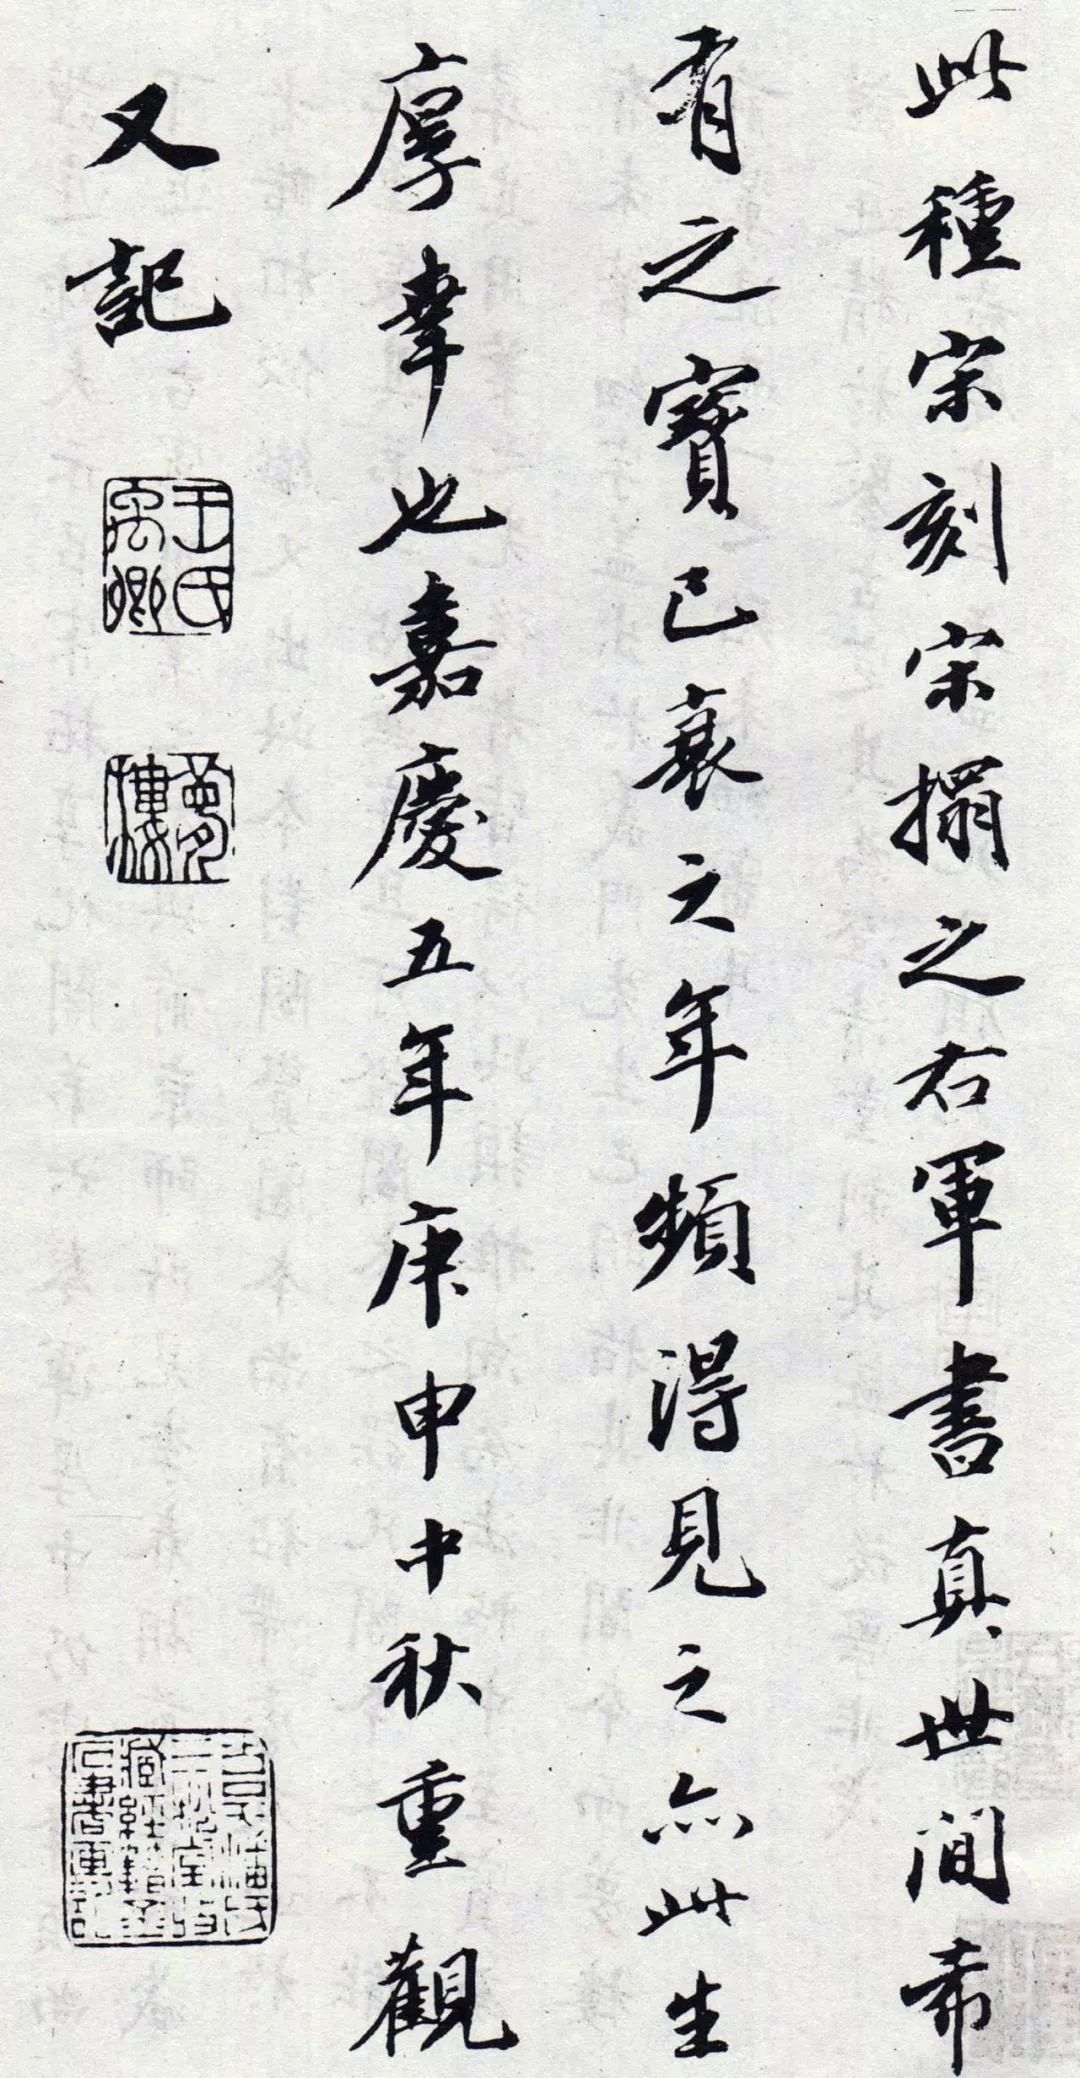 此種宋刻宋搨之右軍書真世間希
有之寶已衰之年頻得見之亦此生
厚幸也嘉慶五年庚申中秋重觀
又記
王氏禹卿
夢樓